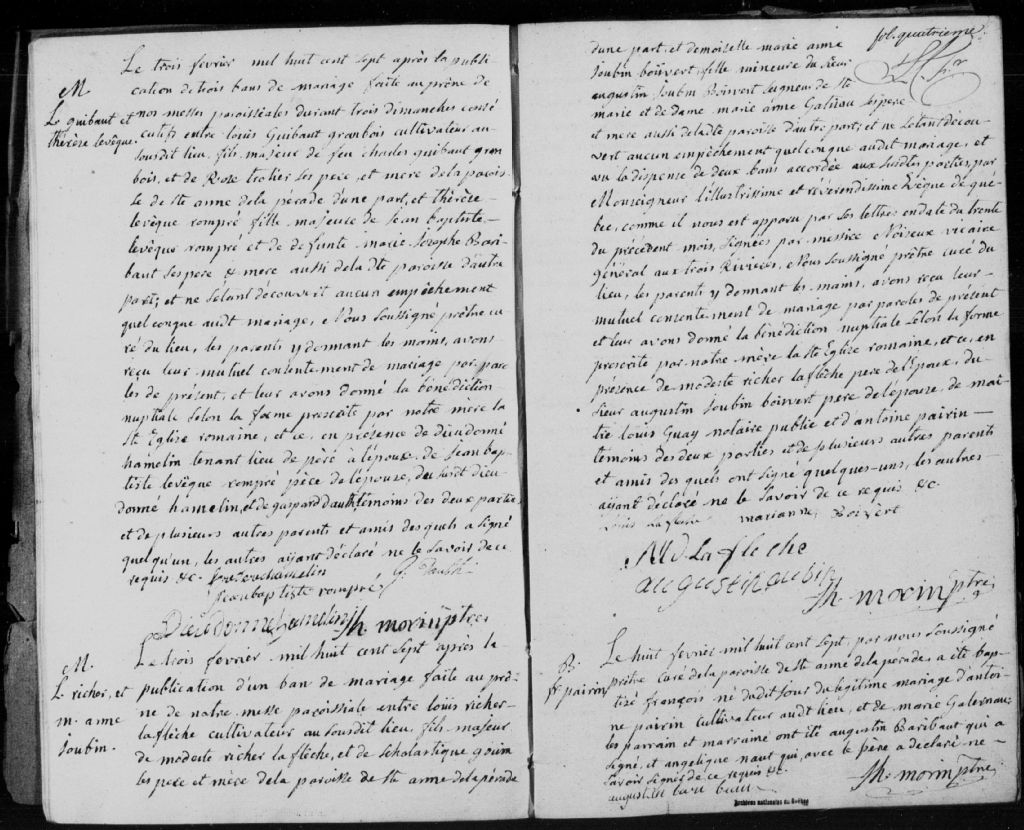 Le trois fevrier mil huit cent sept après la publi-
M
cation de trois bans de mariage faite au prône de
L. guibaut et
nos messes paroissiales durant trois dimanches consé
thèrèse levêque.
cutifs entre louis Guibaut granbois cultivateur au
susdit lieu, fils majeur de feu charles guibaut gran
bois, et de Rose trotier ses pere, et mere de la parois
se de ste anne de la pérade d'une part, et thérèse-
levêque rompré fille majeure de Jean baptiste-
levêque rompré et de defunte marie Josephe Bari-
baut ses pere & mere aussi de la dte paroisse d'autre
part; et ne s'étant découvert aucun empêchement
quelconque audt mariage, Nous Soussigné prêtre cu
ré du lieu, les parents y donnant les mains, avons
reçu leur mutuel consentement de mariage par paro
les de présent, et leur avons donné la bénédiction
nuptiale selon la forme prescrite par notre mère la
Ste Eglise romaine, et ce, en présence de dieudonné
hamelin tenant lieu de péré à l'époux, de Jean bap
tiste levêque rompré pére de l'épouse, du susdt dieu
donné hamelin, et de gaspard dauth témoins des deux parties,
et de plusieurs autres parents et amis des quels a signé
quelqu'un, les autres aïjant déclaré ne le savoir de ce
requis &c.
G. Dauth
Jeanbaptiste rompré
Dieudonne hamelin Th. morin ptre
M.
Le trois fevrier mil huit cent sept après la-
L. richer, et
publication d'un ban de mariage faite au prô-
m. anne
ne de notre messe paroissiale entre loüis richer-
Joubin.
la flêche cultivateur au susdit lieu, fils majeur
de modeste richer la flêche, et de Scholastique goüin
ses pere et mère de la paroisse de ste anne de la pérade
fol. quatrieme
d'une part, et demoiselle marie anne
Joubin boisvert, fille mineure du Sieur
augustin Joubin Boisvert Seigneur de Ste
marie et de Dame marie anne ses pere
et mere aussi de la dte paroisse d'autre part; et ne s'etant décou-
vert aucun empêchement quelconque audit mariage, et
vu la dispense de deux bans accordée aux susdtes parties, par
Monseigneur l'illustrissime et révérendissime Evêque de qué-
bec, comme il nous est apparu par ses lettres en date du trente
du précédent mois, signées par messire Noiseux vicaire
général aux trois Rivières, Nous Soussigné prêtre curé du
lieu, les parents y donnant les mains, avons reçu leur-
mutuel consentement de mariage par paroles de présent
et leur avons donné la bénédiction nuptiale selon la forme
prescrite par notre mère la Ste Eglise romaine, et ce, en
présence de modeste richer la flêche pere de l'Epoux, du
Sieur augustin Joubin boisvert pere de l'épouse, de maî-
tre loüis Guay notaire public et d'antoine pairin-
temoins des deux parties et de plusieurs autres parents
et amis des quels ont signé quelques-uns, les autres-
aïjant déclaré ne le savoir de ce requis &c.
Louis Lafleche marianne Boisvert
M d. La fleche
augustin aubin
Th. morin ptre
B.
Le huit fevrier mil huit cent sept, par nous Soussigné
fr. pairin
prêtre Curé de la paroisse de Ste anne de la pérade, a été bap-
tisé françois né dudit jour du légitime mariage d'antoi-
ne pairin cultivateur audt lieu, et de marie
les parrain et marraine ont été augustin Baribaut qui a
signé, et angelique naut qui, avec le père a declaré ne-
savoir signer de ce requis &c.
augustin bari baux
Th. morin ptre
Archives nationales du Québec